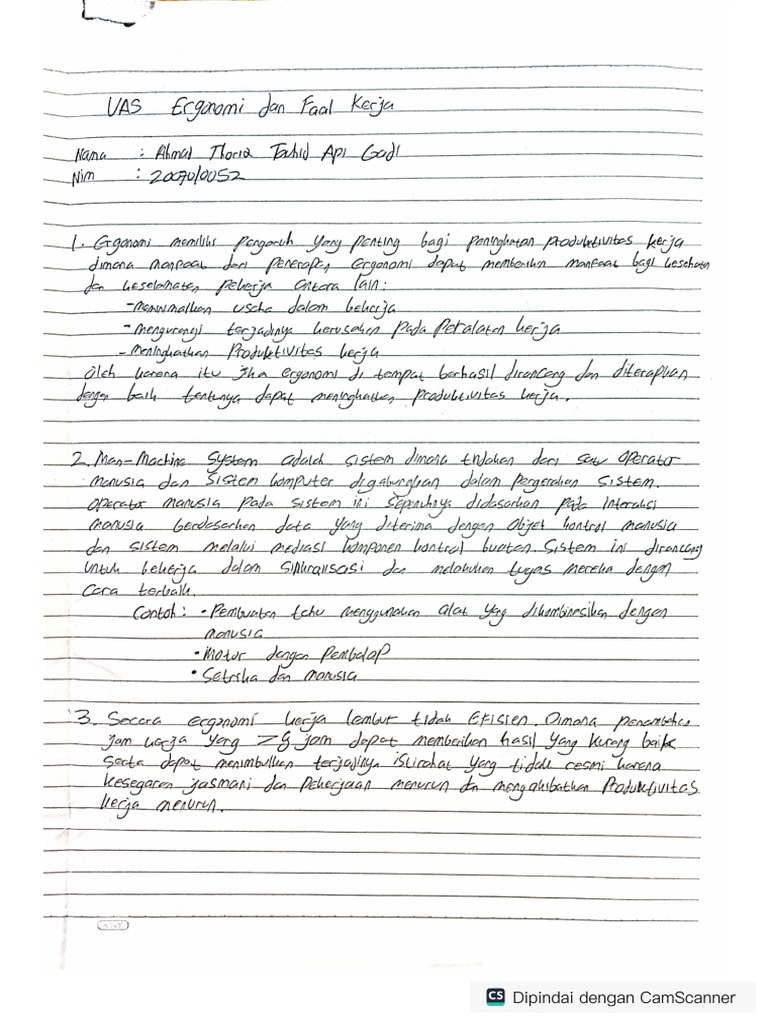 UAS Ergonomi dan Faal Kerja
Nama : Ahmad Thoriq Tauhid Api Gadi
Nim : 2007010052
1. Ergonomi memiliki pengaruh yang penting bagi peningkatan produktivitas kerja
dimana manfaat dari penerapan Ergonomi dapat memberikan manfaat bagi kesehatan
dan keselamatan pekerja antara lain:
- meminimalkan usaha dalam bekerja
- mengurangi terjadinya kerusakan pada Peralatan kerja
- meningkatkan Produktivitas kerja
Oleh karena itu jika ergonomi di tempat berhasil dirancang dan diterapkan
dengan baik tentunya dapat meningkatkan produktivitas kerja.
2. Man-Machine System adalah sistem dimana tindakan dari satu operator
manusia dan sistem komputer digabungkan dalam pergerakan sistem.
operator manusia pada sistem ini sepenuhnya didasarkan pada Interaksi
manusia berdasarkan data yang diterima dengan objek kontrol manusia
dan sistem melalui mediasi komponen kontrol buatan. Sistem ini dirancang
untuk bekerja dalam sinkronisasi dan melakukan tugas mereka dengan
Cara terbaik.
Contoh : • Pembuatan tahu menggunakan alat yang dikombinasikan dengan
manusia
• Motor dengan Pembalap
• Setrika dan manusia
3. Secara ergonomi kerja lembur tidak Efisien. Dimana penambahan
jam kerja yang >8 jam dapat memberikan hasil yang kurang baik
serta dapat menimbulkan terjadinya istirahat yang tidak resmi karena
kesegaran jasmani dan Pekerjaan menurun dan mengakibatkan Produktivitas
kerja menurun.
KIKY
CS Dipindai dengan CamScanner